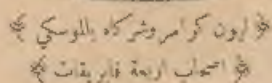 ليون كرامر وشركاه بالموسكي
اصحاب اربعة فابريقات